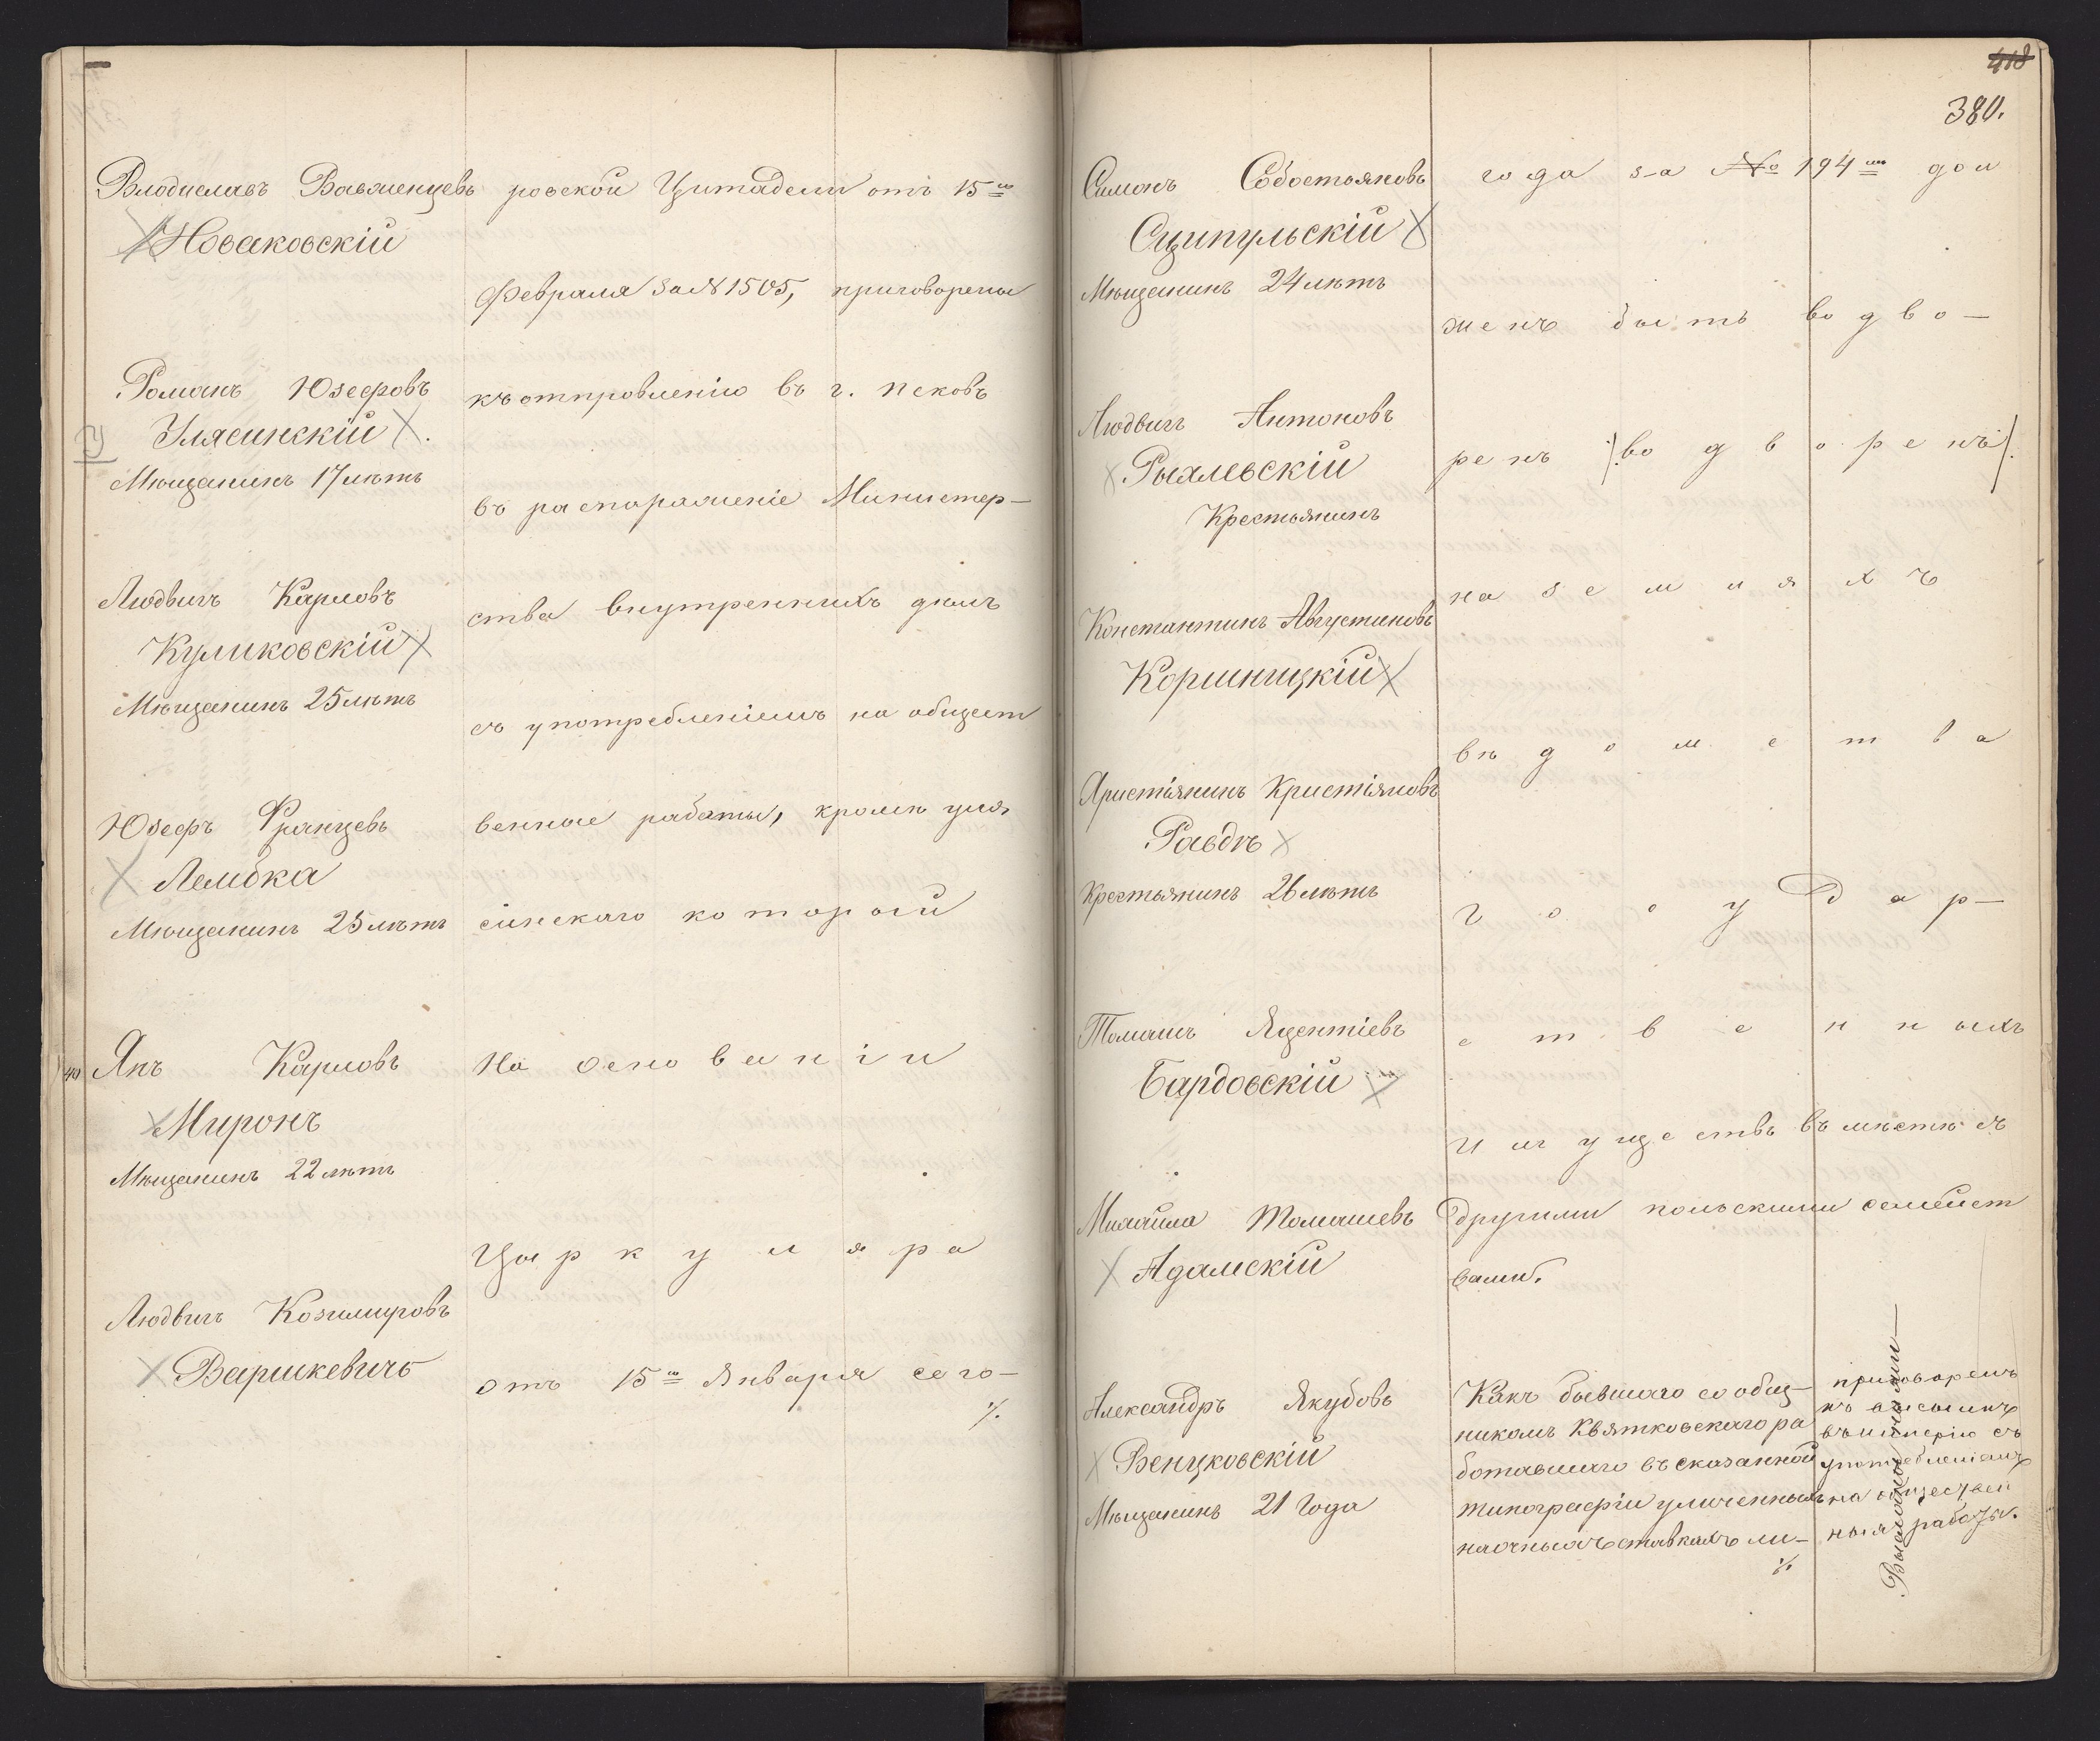 Владиславъ Вавженцевъ
Новаковскій
Романъ Юзефовъ
Улясинскій
Мѣщанинъ 17 лѣтъ
Людвигъ Карловъ
Куликовскій
Мѣщанинъ 25 лѣтъ
Юзефъ Францевъ
Лембка
Мѣщанинъ 25 лѣтъ
40
Янъ Карловъ
Миронъ
Мѣщанинъ 22 лѣтъ
Людвигъ Казимировъ
Варшкевичъ
ровской Цитадели отъ 15го
Февраля за № 1505, приговорены
къ отправленію въ г. Псковъ
въ распоряженіе Министер-
ства внутреннихъ дѣлъ
съ употребленіемъ на общест
венные работы, кромѣ Уля
синскаго который
На основаніи
Циркуляра
отъ 15го Января сего-
%
418
380.
Симонъ Собостьяновъ
Сципульскій
Мѣщанинъ 24 лѣтъ
Людвигъ Антоновъ
Рыхлевскій
Крестьянинъ
Константинъ Августиновъ
Коршницкій
Христіянинъ Кристіяновъ
Равдъ
Крестьянинъ 26 лѣтъ
Томашъ Яцентіевъ
Бардовскій
Михайла Томашевъ
Адамскій
Александръ Якубовъ
Венцковскій
Мѣщанинъ 21 года
года за № 194мъ дол
женъ быть водво-
ренъ /:водворенъ:/
на земляхъ
вѣдомства
Государ-
ственныхъ
имуществъ вмѣстѣ съ
другими польскими семейст
вами.
Какъ бывшаго сообщ-
никомъ Квятковскаго ра
ботавшаго въ сказанной
типографіи уличенныхъ
на очныхъ ставкахъ ли-
%
приговоренъ
къ высылкѣ
въ имперію съ
употребленіемъ
на обществен
ныя работы.